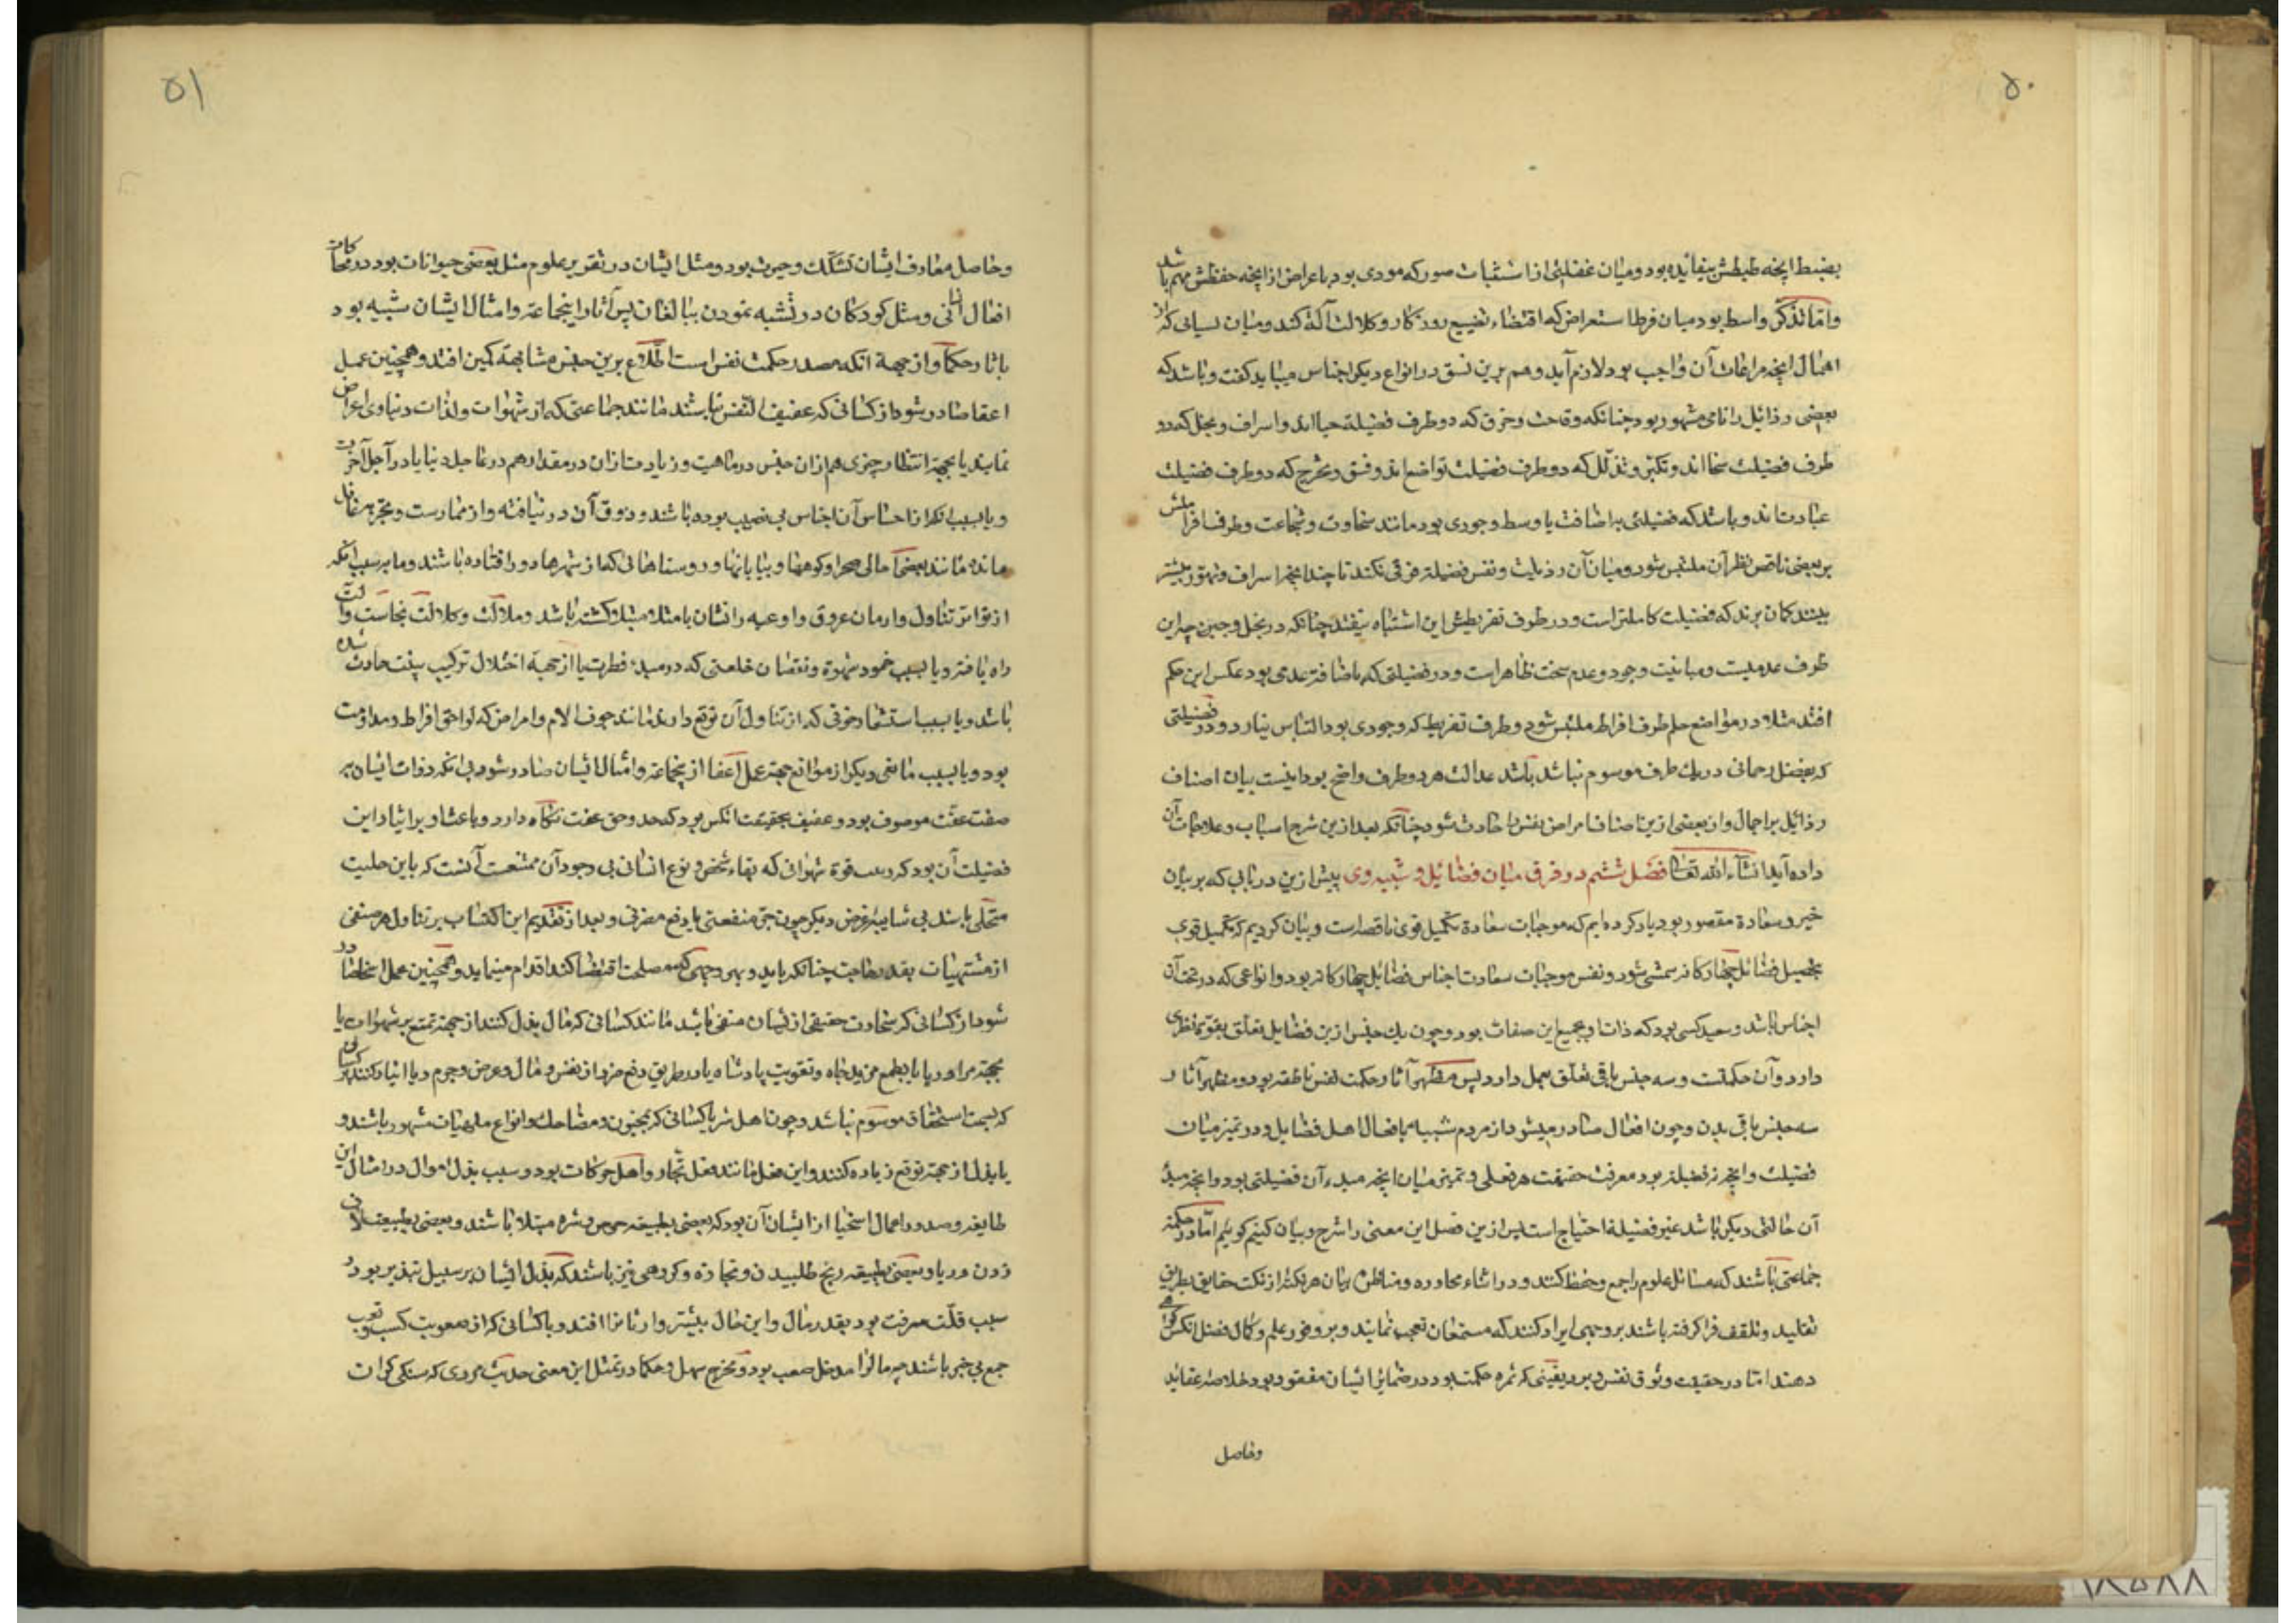 ۵۰
بضبط آنچه ضبطش بیفایده بود و میان غفلتی از استثبات صور که مودی بود باعراض از آنچه حفظش مهم باشد
و اما تذکر واسطه بود میان فرط استعراض که اقتضاء تضییع روزکار و کلالت آلة کند و میان نسیانی که از
اهمال آنچه مراعات آن واجب بود لازم آید و هم برین نسق در انواع دیکر اجناس میباید کفت و باشد که
بعضی رذائل را نامی مشهور بود چنانکه وقاحت و خرق که دو طرف فضیلة حیااند و اسراف و بخل که دو
طرف فضیلت سخااند و تکبر و تذلل که دو طرف فضیلت تواضع اند و فسق و تحرج که دو طرف فضیلت
عبادت اند و باشد که فضیلتی را ضافت با وسط وجودی بود مانند سخاوت و شجاعت و طرف افراطش
بر بعضی ناقص نظران ملتبس شود و میان آن رذیلت و نفس فضیلة فرقی نکنند تا چندانچه اسراف و تهور بیشتر
بینند کمان برند که فضیلت کاملتر است و در طرف تفریطش این اشتباه نیفتد چنانکه در بخل و جبن چه این
طرف عدمیست و مباینت وجود و عدم سخت ظاهر است و در فضیلتی که باضافه عدمی بود عکس این حکم
افتد مثلا در تواضع و حلم طرف افراط ملتبس شود و طرف تفریط که وجودی بود التباس نیارد و در فضیلتی
که بفضل رحمانی در یک طرف موسوم نباشد باشد عدالت هر دو طرف واضح بود اینست بیان اصناف
رذائل بر اجمال و از بعضی ازین اصناف امراض نفس را حادث شود چنانکه بعد ازین شرح اسباب و علاجات آن
داده آید انشاء الله تعالی فصل ششم در فرق میان فضائل و شبیه وی پیش ازین در بابی که بر بیان
خیر و سعادة مقصور بود یاد کرده ایم که موجبات سعادة تکمیل قوی ناقصه است و بیان کردیم که تکمیل قوی
بتحصیل فضائل چهارکانه متمشی شود و نفس موجبات سعادت اجناس فضائل چهارکانه بود و انواعی که در تحت آن
اجناس باشد و سعید کسی بود که ذات او مجمع این صفات بود و چون یک جنس ازین فضایل تعلق بقوة نظری
دارد و آن حکمتست و سه جنس باقی تعلق بعمل دارد پس مظهر آثار حکمت نفس ناطقه بود و مظهر آثار
سه جنس باقی بدن و چون افعال صادر میشود از مردم شبیه بافعال اهل فضایل و در تمیز میان
فضیلت و آنچه نه فضیلة بود معرفت حقیقت هر فعلی و تمیز میان آنچه مبدء آن فضیلتی بود و آنچه مبدء
آن حالتی دیکر باشد غیر فضیلة احتیاج است پس ازین فصل این معنی را شرح و بیان کنیم کوئیم اما در حکمة
جماعتی باشند که مسائل علوم را جمع و حفظ کنند و در اثناء محاوره و مناظره بیان هر نکته از نکت حقایق بطریق
تقلید و تلقف فرا کرفته باشند بر وجهی ایراد کنند که مستمعان تعجب نمایند و بر وفور علم و کمال فضل آنکس کواهی
دهند اما در حقیقت وثوق نفس و برد یقینی که ثمره حکمت بود در ضمائر ایشان مفقود بود خلاصه عقاید
وحاصل
۵۱
وحاصل معارف ایشان تشکک و حیرت بود و مثل ایشان در تقریر علوم مثل بعضی حیوانات بود در محاکات
افعال انسانی و مثل کودکان در تشبه نمودن ببالغان پس آثار اینجماعة و امثال ایشان شبیه بود
باثار حکما و از جهة آنکه مصدر حکمت نفس است اطلاع برین جنس مشابهة کمین افتد و همچنین عمل
اعفا صادر شود از کسانی که عفیف النفس نباشند مانند جماعتی که از شهوات و لذات دنیاوی اعراض
نمایند یا بجهة انتظار چیزی هم ازان جنس در ماهیت و زیادت ازان در مقدار هم در عاجل دنیا یا در آجل آخرت
و یا بسبب آنکه از احساس آن اجناس بی نصیب بوده باشند و ذوق آن در نیافته و از ممارست و تجربه غافل
مانده مانند بعضی اهالی صحرا و کوهها و بیابانها و روستاهائی که از شهرها دور افتاده باشند و یا بر سبب آنکه
از تواتر تناول و ادمان عروق و اوعیه را نشان بامتلا مبتلا کشته باشد و ملالت و کلالت بحاست و آلت
راه یافته و یا بسبب خمود شهوة و نقصان خلقتی که در مبدء فطرت یا از جهة اختلال ترکیب بنیت حادث شده
باشد و یا بسبب استشعار خوفی که از تناول آن توقع دارند مانند خوف آلام و امراض که لواحق افراط و مداومت
بود و یا بسبب مانعی دیکر از موانع چه عمل اعفا از ینجماعة و امثال ایشان صادر شود بی آنکه ذوات ایشان بر
صفت عفت موصوف بود و عفیف بحقیقت آنکس بود که حد و حق عفت نکاه دارد و باعث او بر ایثار این
فضیلت آن بود که قوة شهوانی که بقاء شخص و نوع انسانی بی وجود آن ممتنعست آنست که باین حلیت
متحلی باشد بی شایبه غرض دیکر چون جر منفعتی یا دفع مضرتی و بعد از تقدیم این اکتساب بر تناول هر صنفی
از مشتهیات بقدر حاجت چنانکه باید و بهر وجهی که مصلحت اقتضا کند اقدام مینماید و همچنین عمل اسخیا صادر
شود از کسانی که سخاوت حقیقی ازیشان منفی باشد مانند کسانی که مال بذل کنند از جهة تمتع بر شهوات یا
بجهة مرا و ریا یا بطمع مزید جاه و تقویت پادشاه یا در طریق دفع ضرر از نفس و مال و عرض و حرم و یا ایثار کنند بر کسانی
که بسمت استحقاق موسوم نباشد و چون اهل شر یا کسانی که بمجون و مضاحک و انواع ملهیات مشهور باشند و
یا بذل از جهة توقع زیاده کنند و این فعل مانند فعل تجار و اهل حرکات بود و سبب بذل اموال در امثال این
طایفه و صدور اعمال اسخیا از ایشان آن بود که بعضی بطبیعة حرص و شره مبتلا باشند و بعضی بطبیعت لاف
زدن و ریا و بعضی بطبیعة ربح طلبیدن و تجارة و کروهی نیز باشند که بذل ایشان بر سبیل تبذیر بود و
سبب قلت معرفت بود بقدر مال و این حال بیشتر وارثانرا افتد و با کسانی که از صعوبت کسب و تعب
جمع بی خبر باشند چه مال را مدخل صعب بود و مخرج سهل و حکما در تمثل این معنی حدیث مردی که سنکی کران